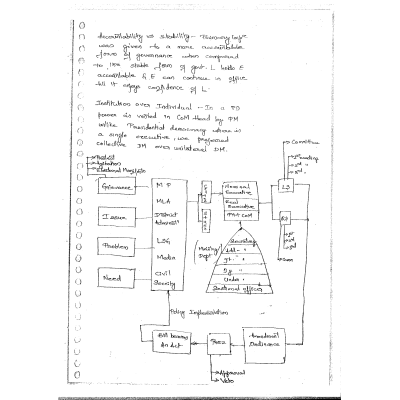 Accountability vs Stability - Primacy
was given to a more accountable
form of governance when compared
to less stable form of govt. L holds E
accountable & E can continue in office
till it enjoys confidence of L.
Institution over Individual - In a PD
power is vested in CoM Head by PM
unlike Presidential democracy where is
a single executive, we preferred
collective DM over unilateral DM.
Committee
Protest
Agitations
Electoral Manifesto
1st reading
2nd "
3rd "
Grievance
MP
Nominal
Executive
LS
Real
Executive
MLA
PM + CoM
RS
Issue
District
1st
2nd
3rd
Problem
LSG
(Ministry
Dept)
Secretary
Addl. "
Jt. "
Media
Dy. "
Need
Civil
Society
Under "
Sectional officer
Policy Implementation
Bill becomes
An Act
Prez
Amendment
Ordinance
Approval
Veto